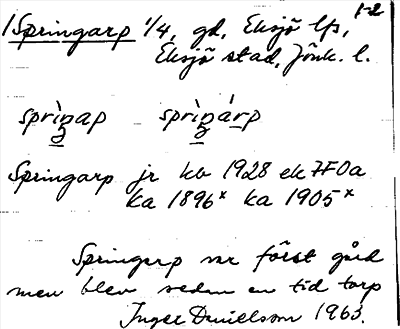 1-2
/Springarp 1/4, gd, Eksjö lfs,
Eksjö stad, Jönk. l.
sprìŋap sprìŋárp
Springarp jr kb 1928 ek 7F0a
ka 1896x ka 1905x
Springarp var först gård
men blev sedan en tid torp
Inger Danielsson 1963.